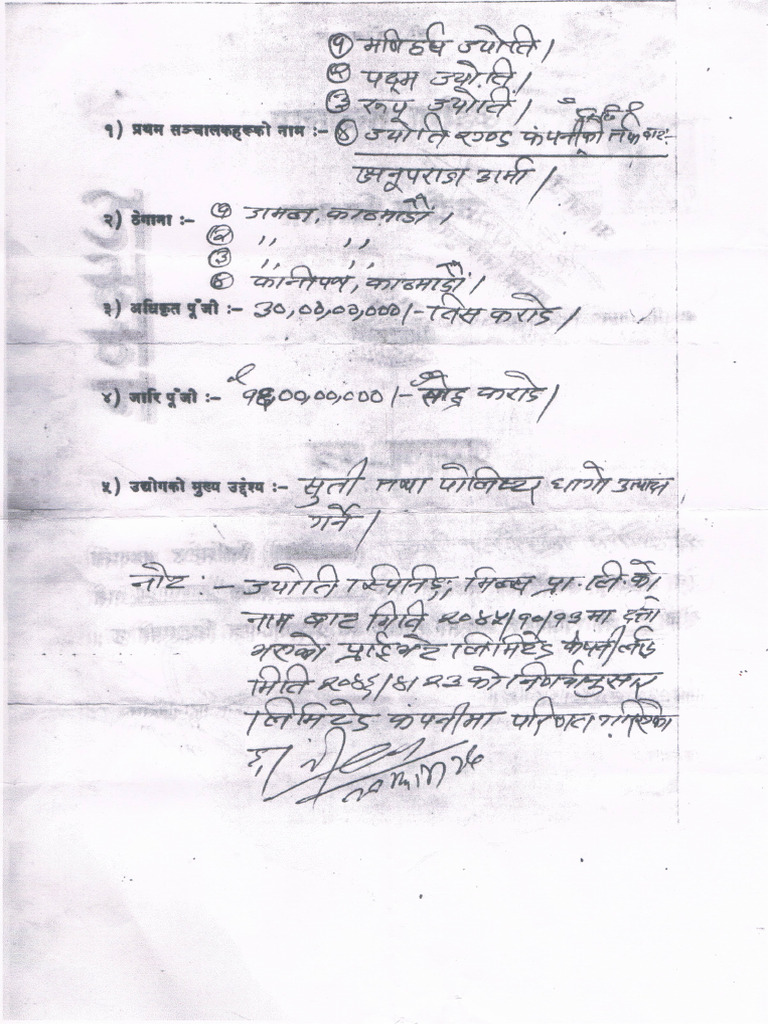 ① मणिहर्ष ज्योति ।
② पद्म ज्योति ।
③ रूप ज्योति ।
१) प्रथम सञ्चालकहरूको नाम :- ④ ज्योति एण्ड कंपनीको तर्फ बाट:-
अनूपराज शर्मा ।
२) ठेगाना :- ① जमल, काठमाडौं ।
② ,, ,,
③ ,, ,,
④ कान्तीपथ, काठमाडौं ।
३) अधिकृत पूँजी :- ३०,००,००,०००/- तिस करोड ।
४) जारि पूँजी :- ००,००,०००/- करोड ।
५) उद्योगको मुख्य उद्देश्य :- सुती तथा पोलिष्टर धागो उत्पादन
गर्ने ।
नोट :- ज्योति स्पिनिङ्ग मिल्स प्रा. लि. को
नाम बाट मिति २०४५/१०/१३ मा दर्ता
भएको प्राईभेट लिमिटेड कंपनीलाई
मिति २०४६/४/२३ को निर्णयानुसार
लिमिटेड कंपनीमा परिणत गरिएको
छ ।